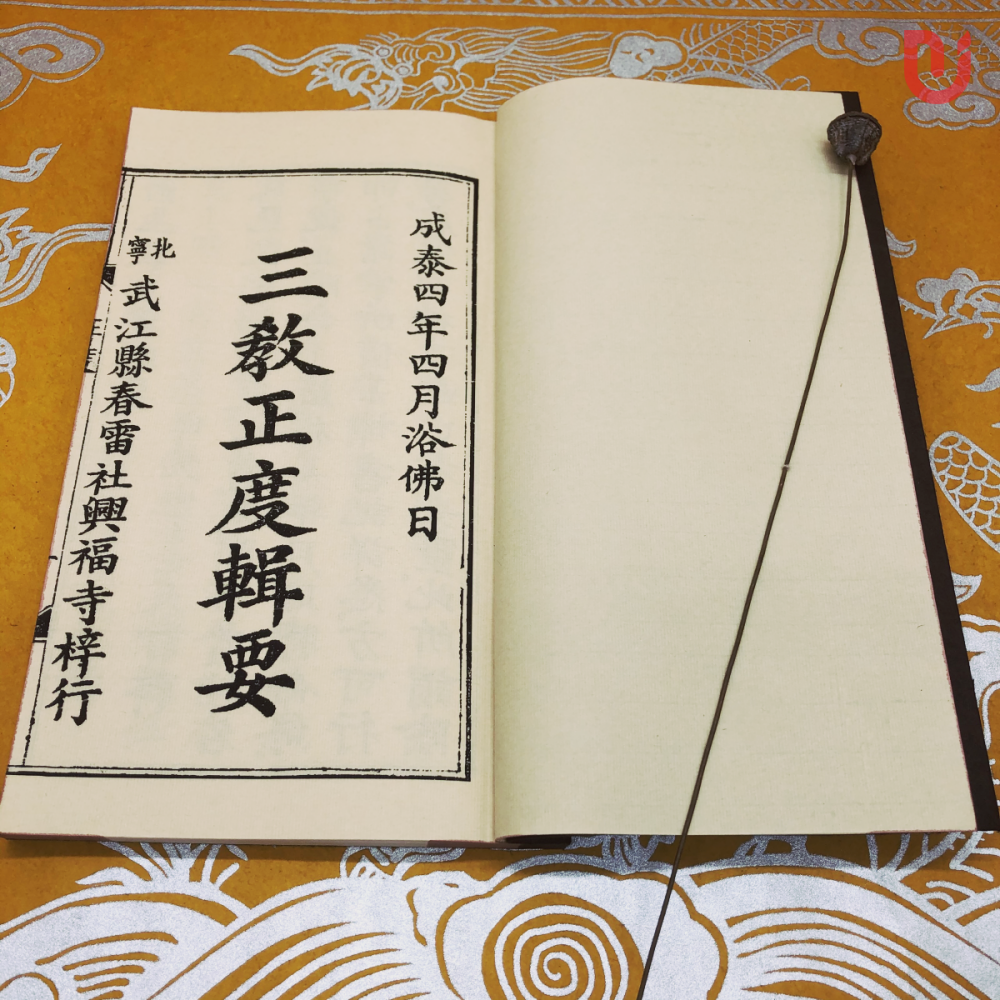 成泰四年四月浴佛日
三教正度輯要
北寧武江縣春雷社興福寺梓行
正度